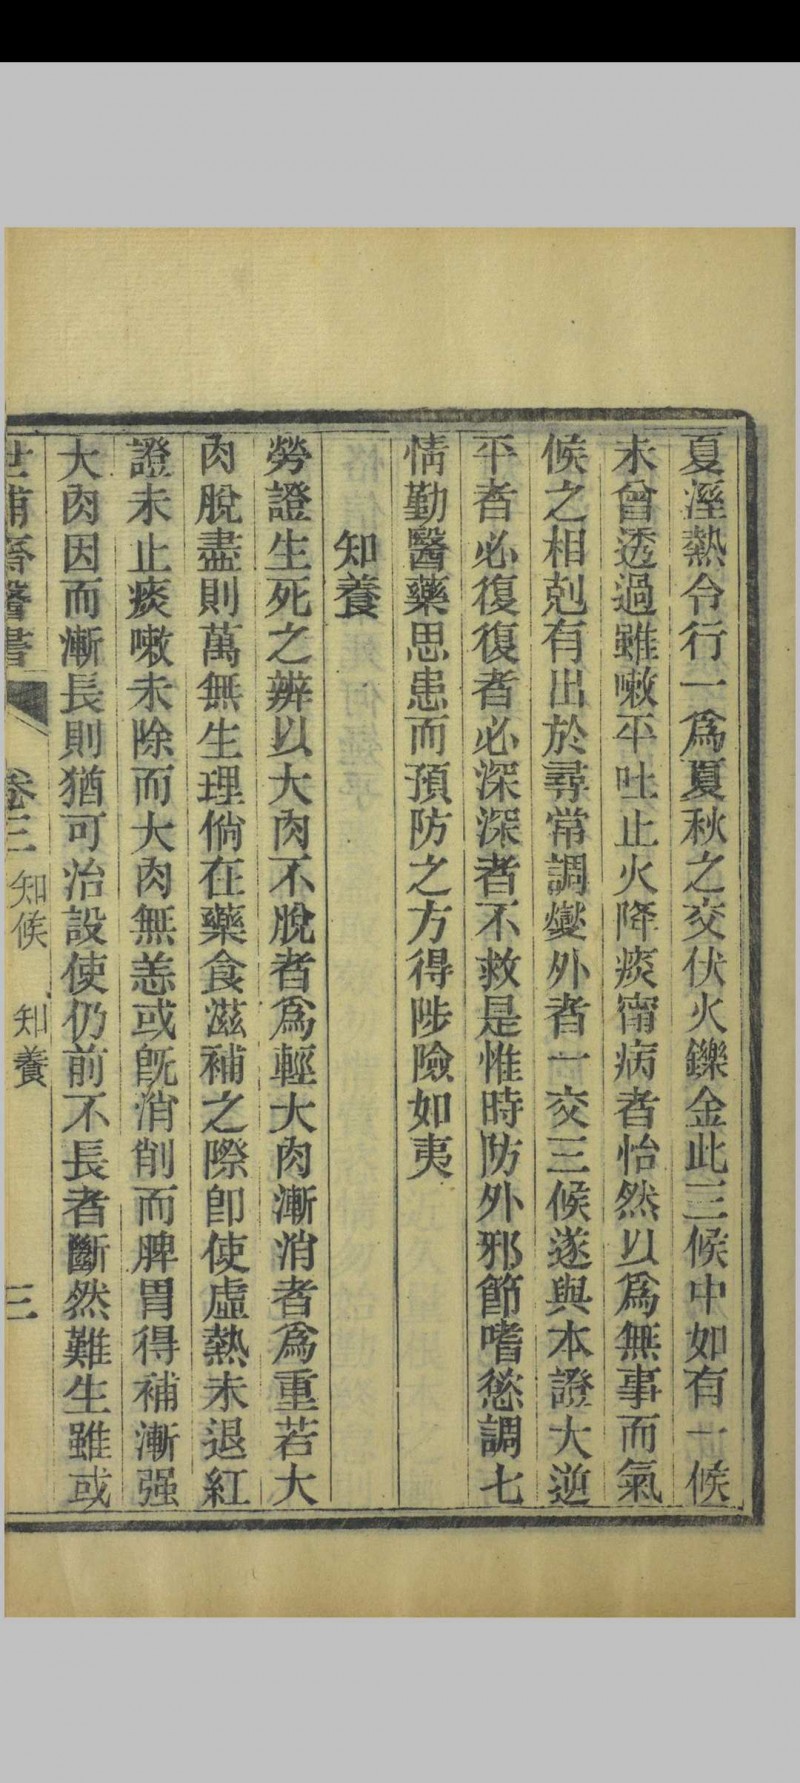 夏溼熱令行一爲夏秋之交伏火鑠金此三候中如有一候
未曾透過雖嗽平吐止火降痰甯病者怡然以爲無事而氣
候之相剋有出於尋常調燮外者一交三候遂與本證大逆
平者必復復者必深深者不救是惟時防外邪節嗜慾調七
情勤醫藥思患而預防之方得陟險如夷
知養
勞證生死之辨以大肉不脫者爲輕大肉漸消者爲重若大
肉脫盡則萬無生理倘在藥食滋補之際卽使虛熱未退紅
證未止痰嗽未除而大肉無恙或旣消削而脾胃得補漸强
大肉因而漸長則猶可治設使仍前不長者斷然難生雖或
世補齋醫書 卷三 知候 知養 三